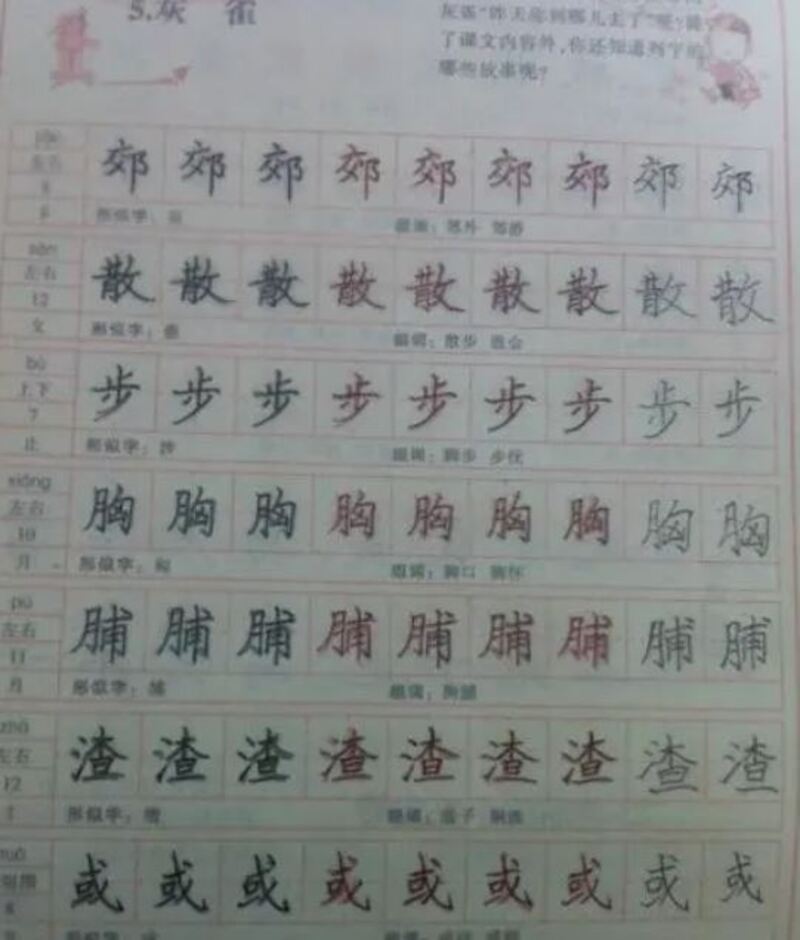 5.灰 雀
灰雀"昨天你到哪儿去了"呢?除
了课文内容外,你还知道列宁的
哪些故事呢?
左右 郊 郊 郊 郊 郊 郊 郊 郊 郊
8
形似字: 组词:郊外 郊游
sàn 散 散 散 散 散 散 散 散 散
左右
12
攵 形似字: 组词:散步 散会
bù 步 步 步 步 步 步 步 步 步
上下
7
止 形似字:涉 组词:脚步 步伐
xiōng 胸 胸 胸 胸 胸 胸 胸 胸 胸
左右
10
月 形似字: 组词:胸口 胸怀
pú 脯 脯 脯 脯 脯 脯 脯 脯 脯
左右
11
月 形似字: 组词:胸脯
zhā 渣 渣 渣 渣 渣 渣 渣 渣 渣
左右
12
氵 形似字: 组词:渣子
huò 或 或 或 或 或 或 或 或 或
8
形似字: